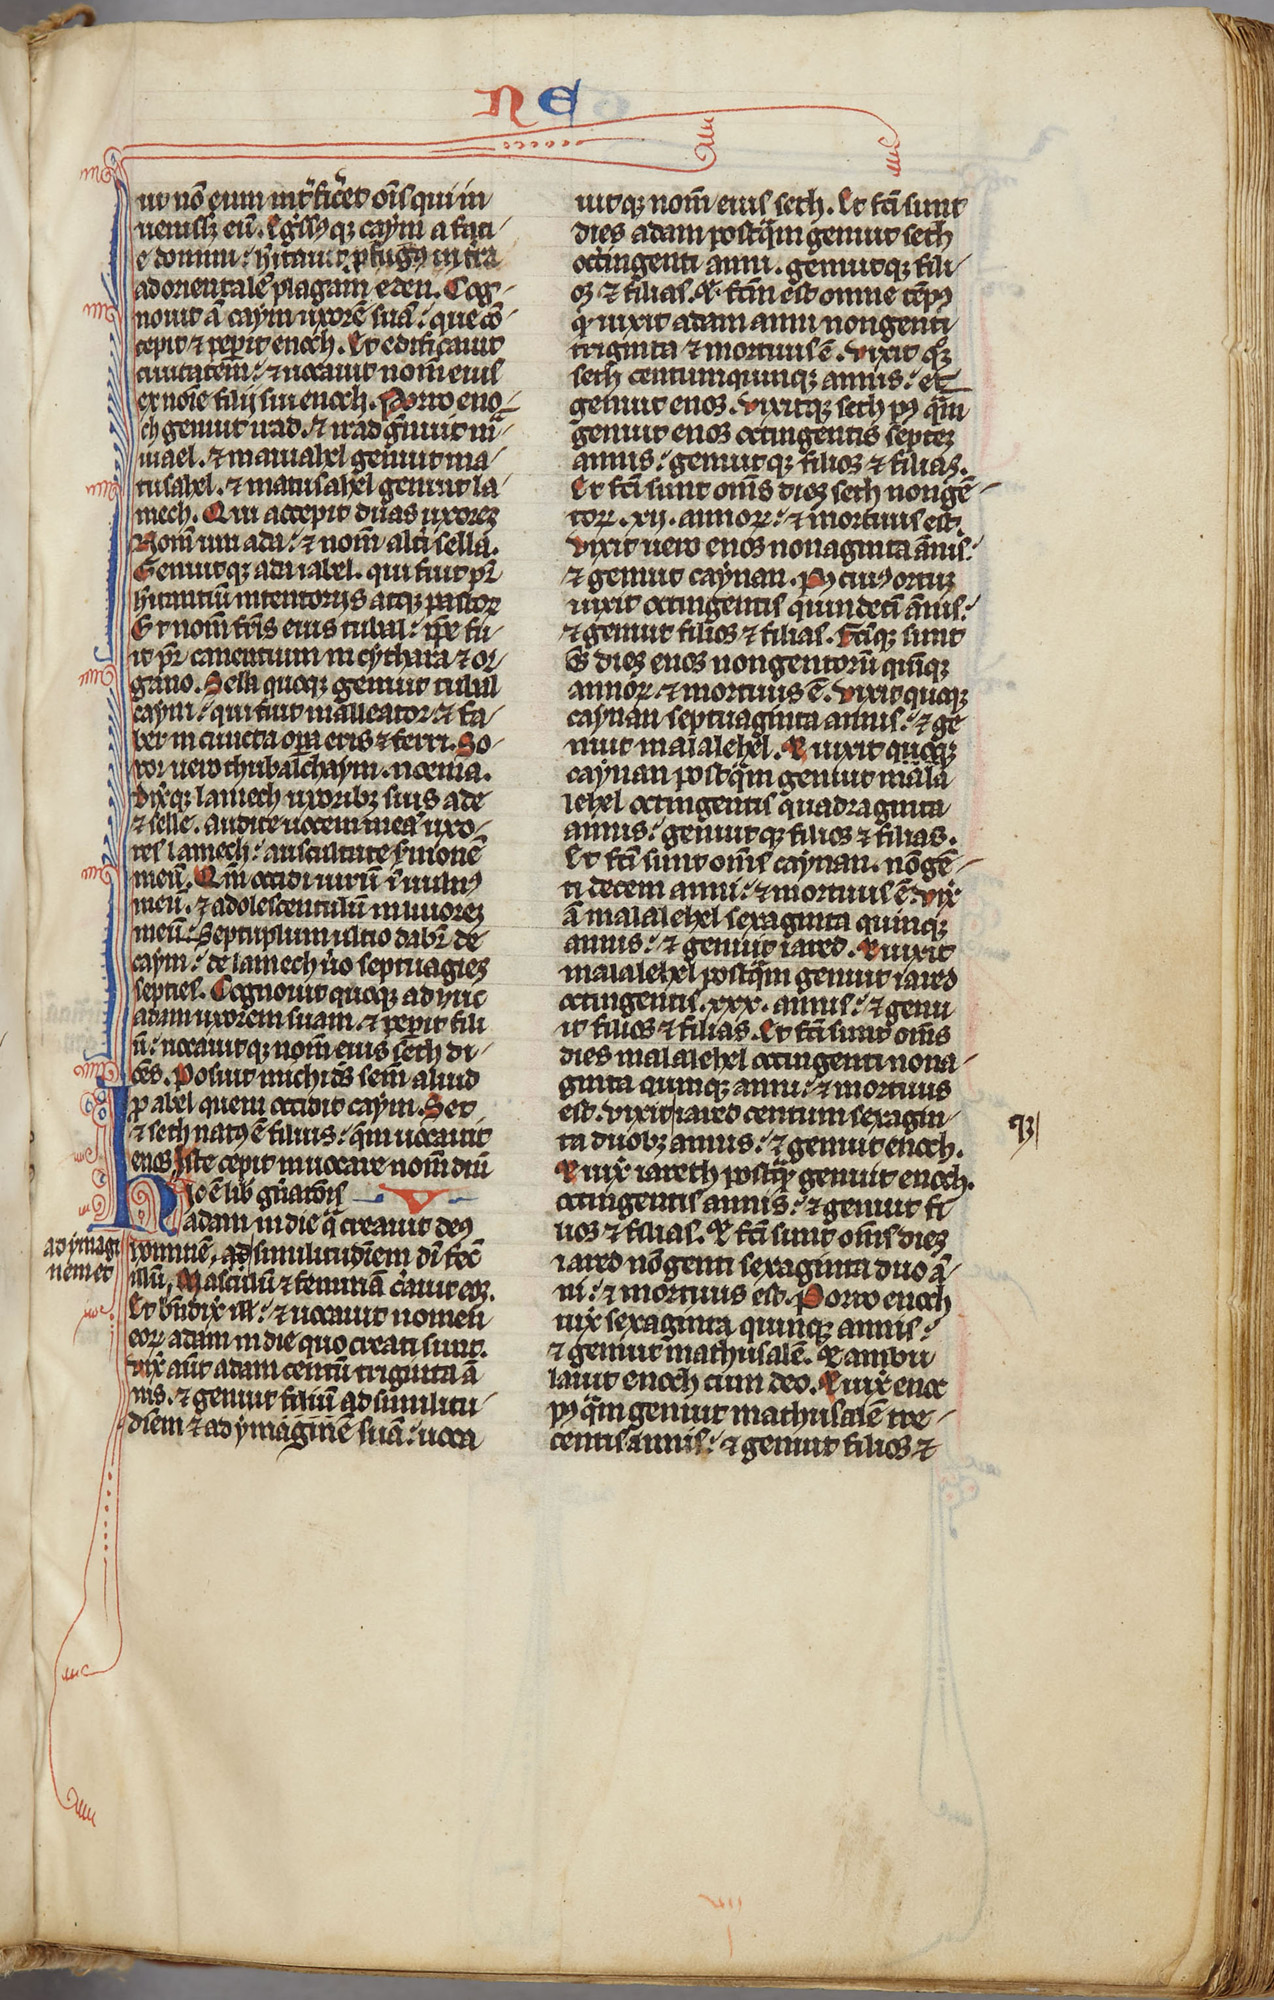 NE
ut nō eum int̄ficeret oīs qui in
uenisset eū. Egressꝰ qꝫ caym a faci
e domini: hītauit ꝓfugꝰ in t̄ra
ad orientalē plagam eden. Cog
nouit ā caym uxorē suā: que cō
cepit ⁊ peperit enoch. Et edificauit
ciuitatem: ⁊ uocauit nom̄ eius
ex noīe filij sui enoch. Porro eno
ch genuit irad. ⁊ irad genuit m
uiael. ⁊ mauiahel genuit ma
tusahel. ⁊ matusahel genuit la
mech. Qui accepit duas uxores
Nom̄ uni ada: ⁊ nom̄ alt̄i sella.
Genuit qꝫ ada iabel. qui fuit pr̄
hitantiū in tentorijs atqꝫ pastoꝝ
Et nom̄ fr̄is eius iubal: ip̄e fu
it pr̄ canentium in cythara ⁊ or
gano. Sella quoqꝫ genuit tubal
caym: qui fuit malleator ⁊ fa
ber in cuncta opera eris ⁊ ferri. So
ror uero thubalchaym. noema.
Dixit qꝫ lamech uxoribꝫ suis ade
⁊ selle. audite uocem meā uxo
res lamech: auscultate sermonē
meū. Qm̄ occidi uirū ī uulnꝰ
meū. ⁊ adolescentulū in liuorem
meū: Septuplum ultio dabit̄ de
caym: de lamech uo septuagies
septies. Cognouit quoqꝫ adhuc
adam uxorem suam. ⁊ peperit fili
ū: uocauit qꝫ nom̄ eius seth di
cēs. Posuit michi ds̄ sem̄ aliud
ꝓ abel quem occidit caym. Set
⁊ seth natꝰ ē filius: qm̄ uocauit
enos Iste cepit inuocare nom̄ dn̄i
Hic ē lib̄ gn̄atōis V
adam in die q̄ creauit deꝰ
hominē. ad similitudinem dī fec̄
illū, Masculū ⁊ feminā creauit eos.
Et bn̄dix̄ ill̄: ⁊ uocauit nomen
eoꝝ adam in die quo creati sunt.
Vix̄ aūt adam centū triginta ā
nis. ⁊ genuit filiū ad similitu
diem ⁊ ad ymaginē suā: uoca
ad ymagi
nem et
uit qꝫ nom̄ eius seth. Et fc̄i sunt
dies adam postq̄m genuit seth
octingenti anni. genuit qꝫ fili
os ⁊ filias. ⁊ fc̄m est omne tēpꝰ
q̄ uixit adam anni nongenti
triginta ⁊ mortuus ē. Vixit qꝫ
seth centum quinqꝫ annis: et
genuit enos. Vixit qꝫ seth pꝰ q̄m
genuit enos octingentis septem
annis: genuit qꝫ filios ⁊ filias.
Et fc̄i sunt om̄s dies seth nongē
toꝝ. xij. annoꝝ: ⁊ mortuus est.
Vixit uero enos nonaginta ānis:
⁊ genuit caynan. Pꝰ cuiꝰ ortum
uixit octingentis quindeci ānis:
⁊ genuit filios ⁊ filias. Fc̄i qꝫ sunt
oēs dies enos nongentorū quinqꝫ
annoꝝ. ⁊ mortuus ē. Vixit quoqꝫ
caynan septuaginta annis: ⁊ ge
nuit malalehel. Et uixit quoqꝫ
caynan postq̄m genuit mala
lehel octingentis quadraginta
annis: genuit qꝫ filios ⁊ filias.
Et fc̄i sunt om̄s caynan. nōgē
ti decem anni: ⁊ mortuus ē. Vix̄
ā malalehel sexaginta quinqꝫ
annis: ⁊ genuit iared. Et uixit
malalehel postq̄m genuit iared
octingentis. xxx. annis: ⁊ genu
it filios ⁊ filias. Et fc̄i sunt om̄s
dies malalehel octingenti nona
ginta quinqꝫ anni: ⁊ mortuus
est. Vixit iared centum sexagin
qꝫ
ta duobꝫ annis: ⁊ genuit enoch.
Et uix̄ iareth postq̄ genuit enoch.
octingentis annis: ⁊ genuit fi
lios ⁊ filias. Et fc̄i sunt om̄s dies
iared nōgenti sexaginta duo ā
ni: ⁊ mortuus est. Porro enoch
uix̄ sexaginta quinqꝫ annis:
⁊ genuit mathusalē. Et ambu
lauit enoch cum deo. Et uix̄ enoc
pꝰ q̄m genuit mathusalē tre
centis annis: ⁊ genuit filios ⁊